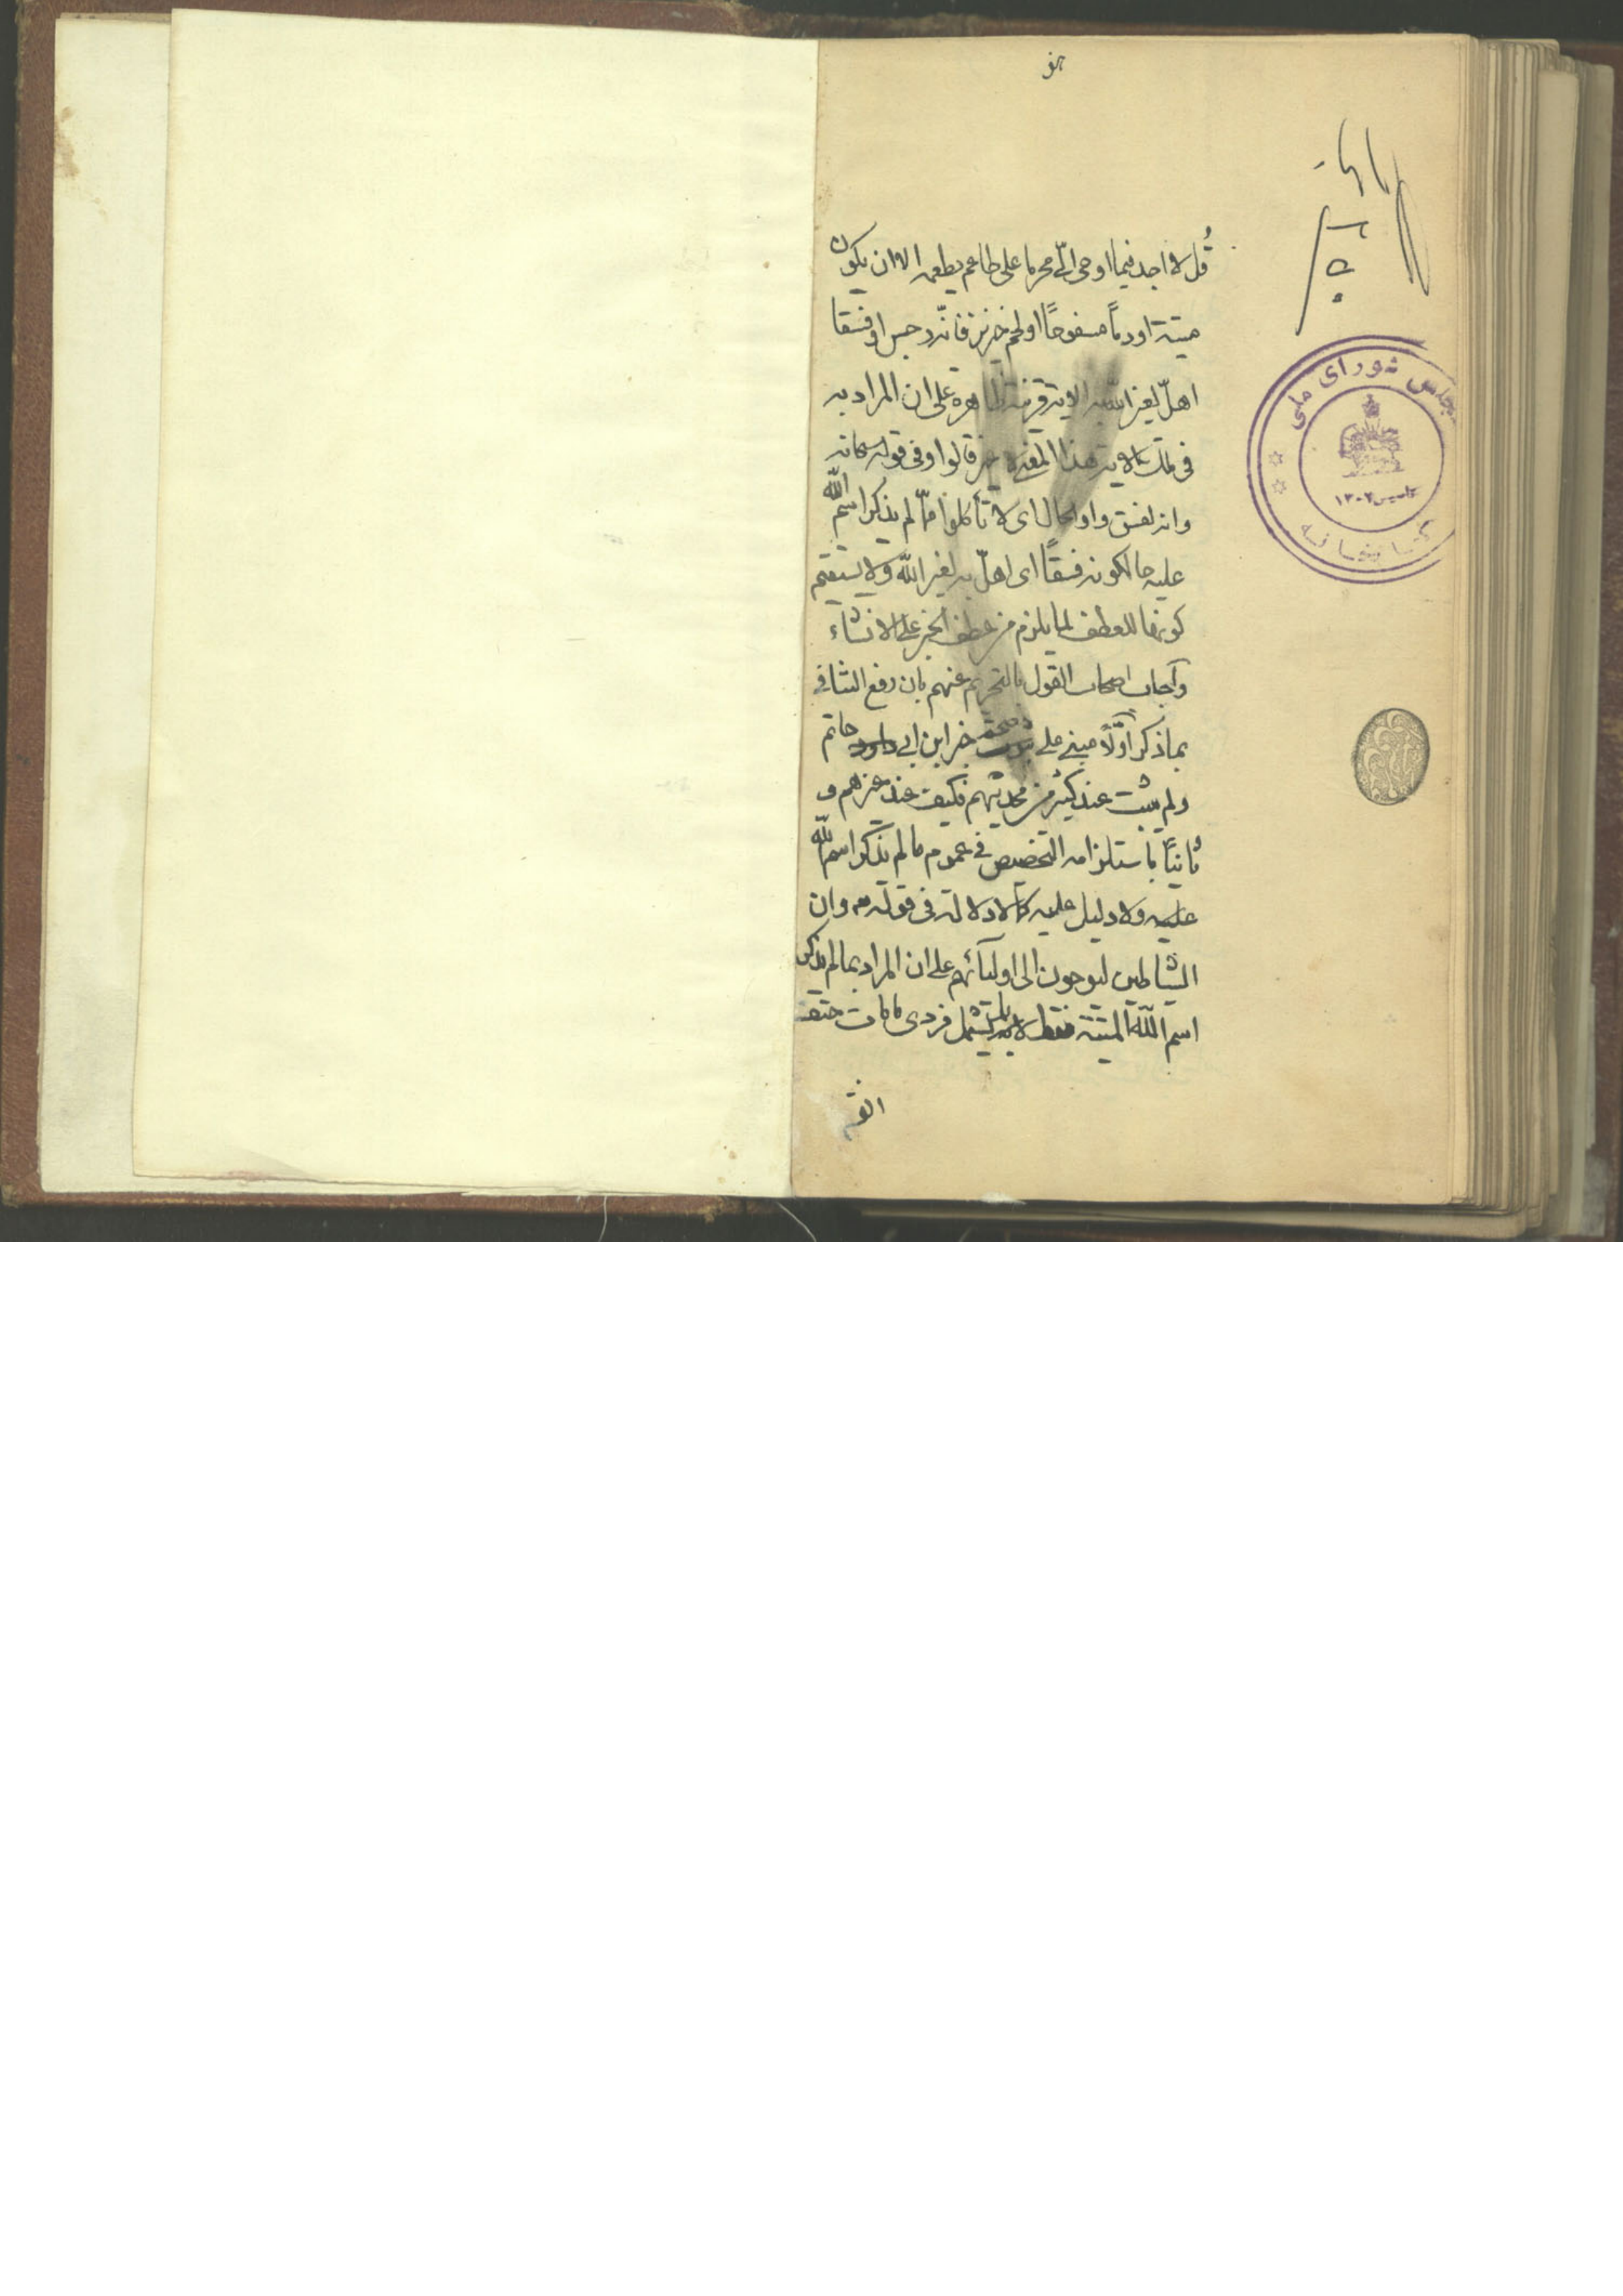 قُل لا اجد فيما اوحى الىّ محرما على طاعم يطعمه الا ان يكون
ميتة او دماً مسفوحاً او لحم خنزير فانّه رجس او فسقا
اهلّ لغير الله به الاية قرينة ظاهرة على ان المراد به
فى تلك الاية هذا المعنى قالوا وفى قوله سبحانه
وانه لفسق واو الحال اى لا تأكلوا ممّا لم يذكر اسم الله
عليه حال كونه فسقاً اى اهلّ به لغير الله ولا يستقيم
كونها للعطف لما يلزم من عطف الخبر على الانشاء
وآجاب اصحاب القول بالتحريم عنهم بان رفع التنافى
بما ذكر اوّلاً مبنى على صحة خبر ابن ابى حاتم
ولم يثبت عند كثير من محدثيهم فكيف عند غيرهم و
ثانياً باستلزامه التخصيص فى عموم ما لم يذكر اسم الله
عليه ولا دليل عليه كما لا دلالة فى قوله وان
الشياطين ليوحون الى اوليآئهم على ان المراد بما لم يذكر
اسم الله الميتة فقط فردى ما مات حتف
انفه
مجلس شورای ملی
تاسیس ۱۳۰۲
کتابخانه